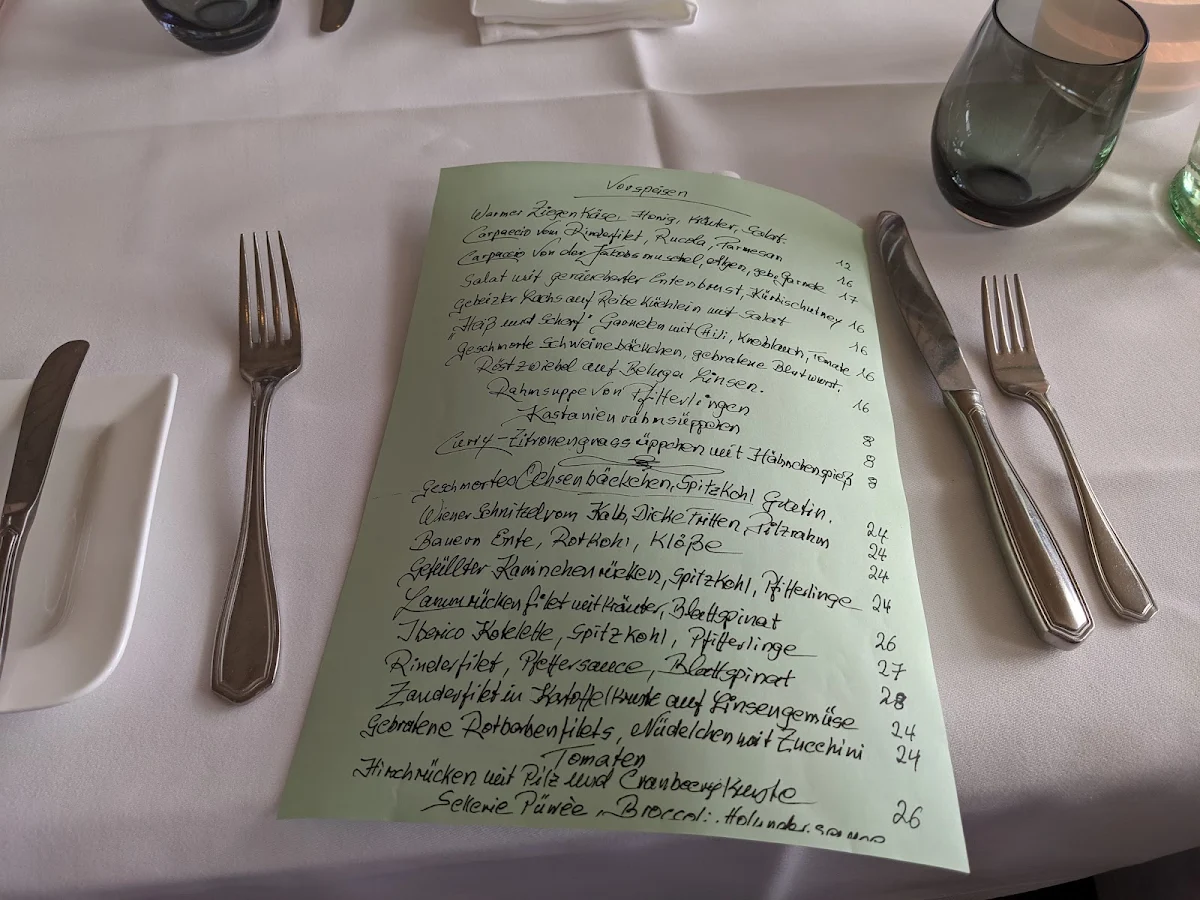 Vorspeisen
Warmer Ziegenkäse, Honig, Kräuter, Salat. 12
Carpaccio vom Rinderfilet, Rucola, Parmesan 16
Carpaccio von der Jakobsmuschel, Algen, geb. Garnele 17
Salat mit geräucherter Entenbrust, Kürbischutney 16
gebeizter Lachs auf Reibeküchlein mit Salat 16
"Heiß und Scharf" Garnelen mit Chili, Knoblauch, Tomate 16
geschmorte Schweinebäckchen, gebratene Blutwurst,
Röstzwiebel auf Beluga Linsen. 16
Rahmsuppe von Pfifferlingen 8
Kastanienrahmsüppchen 8
Curry-Zitronengrassüppchen mit Hähnchenspieß 8
geschmortes Ochsenbäckchen, Spitzkohl Gratin. 24
Wiener Schnitzel vom Kalb, Dicke Fritten, Pilzrahm 24
Bauern Ente, Rotkohl, Klöße 24
Gefüllter Kaninchenrücken, Spitzkohl, Pfifferlinge 24
Lammrückenfilet mit Kräuter, Blattspinat 26
Iberico Kotelette, Spitzkohl, Pfifferlinge 27
Rinderfilet, Pfeffersauce, Blattspinat 28
Zanderfilet in Kartoffelkruste auf Linsengemüse 24
Gebratene Rotbarbenfilets, Nüdelchen mit Zucchini 24
Tomaten
Hirschrücken mit Pilz und Cranberry Kruste 26
Sellerie Püree, Broccoli, Holundersauce